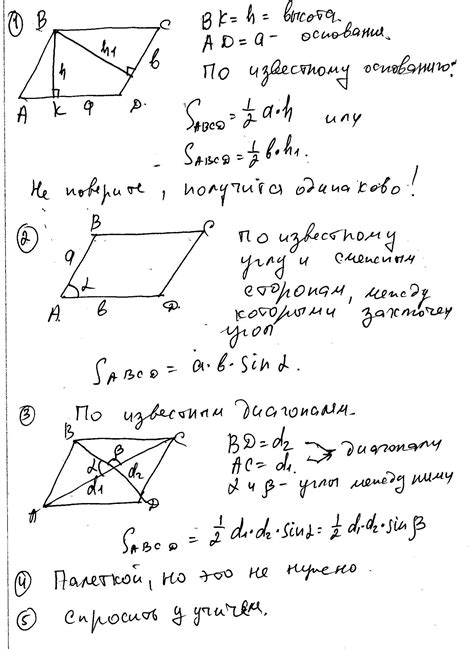 ① B C BK = h = высота.
h h₁ b AD = a - основания.
A K a D. По известному основанию:
S_ABCD = ½ a · h или
S_ABCD = ½ b · h₁.
Не поверите, получится одинаково!
② B C по известному
a α углу и смежным
A. b D. сторонам, между
которыми заключен
угол
S_ABCD = a · b · sin α.
③ По известным диагоналям.
B C BD = d₂
α β d₁ d₂ AC = d₁. диагонали
A D α и β - углы между ними
S_ABCD = ½ d₁ · d₂ · sin α = ½ d₁ · d₂ · sin β
④ Палеткой, но это не нужно.
⑤ Спросить у учител.